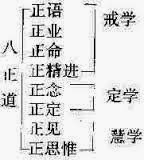 八正道
正语
正业
正命
正精进
正念
正定
正见
正思惟
戒学
定学
慧学